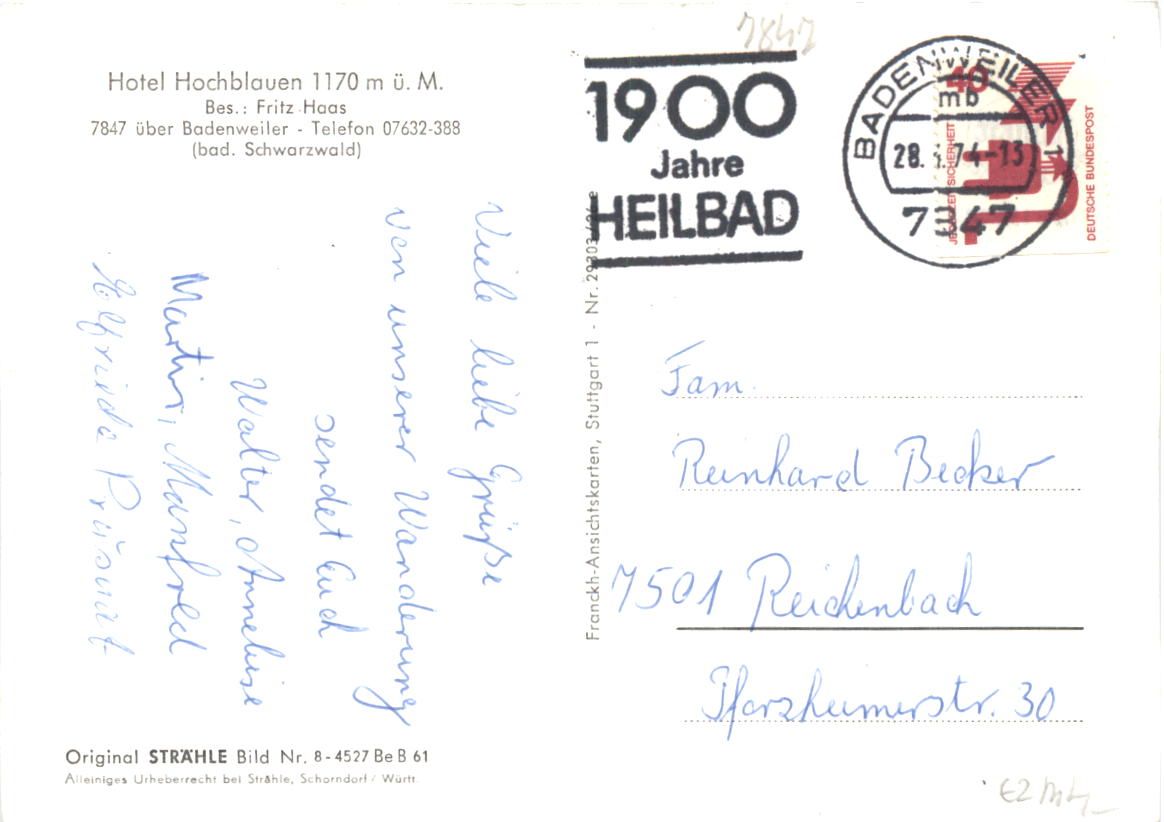 7847
Hotel Hochblauen 1170 m ü. M.
Bes.: Fritz Haas
7847 über Badenweiler - Telefon 07632-388
(bad. Schwarzwald)
Viele liebe Grüße
von unserer Wanderung
sendet Euch
Walter, Anneliese
Martin, Manfred
Elfriede
Original STRÄHLE Bild Nr. 8-4527 Be B 61
Alleiniges Urheberrecht bei Strähle, Schorndorf / Württ.
Franckh-Ansichtskarten, Stuttgart 1 - Nr.
1900
Jahre
HEILBAD
BADENWEILER 1
mb
28. .74-13
7847
40
JEDERZEIT SICHERHEIT
DEUTSCHE BUNDESPOST
Fam.
Reinhard Becker
7501 Reichenbach
Pforzheimerstr. 30